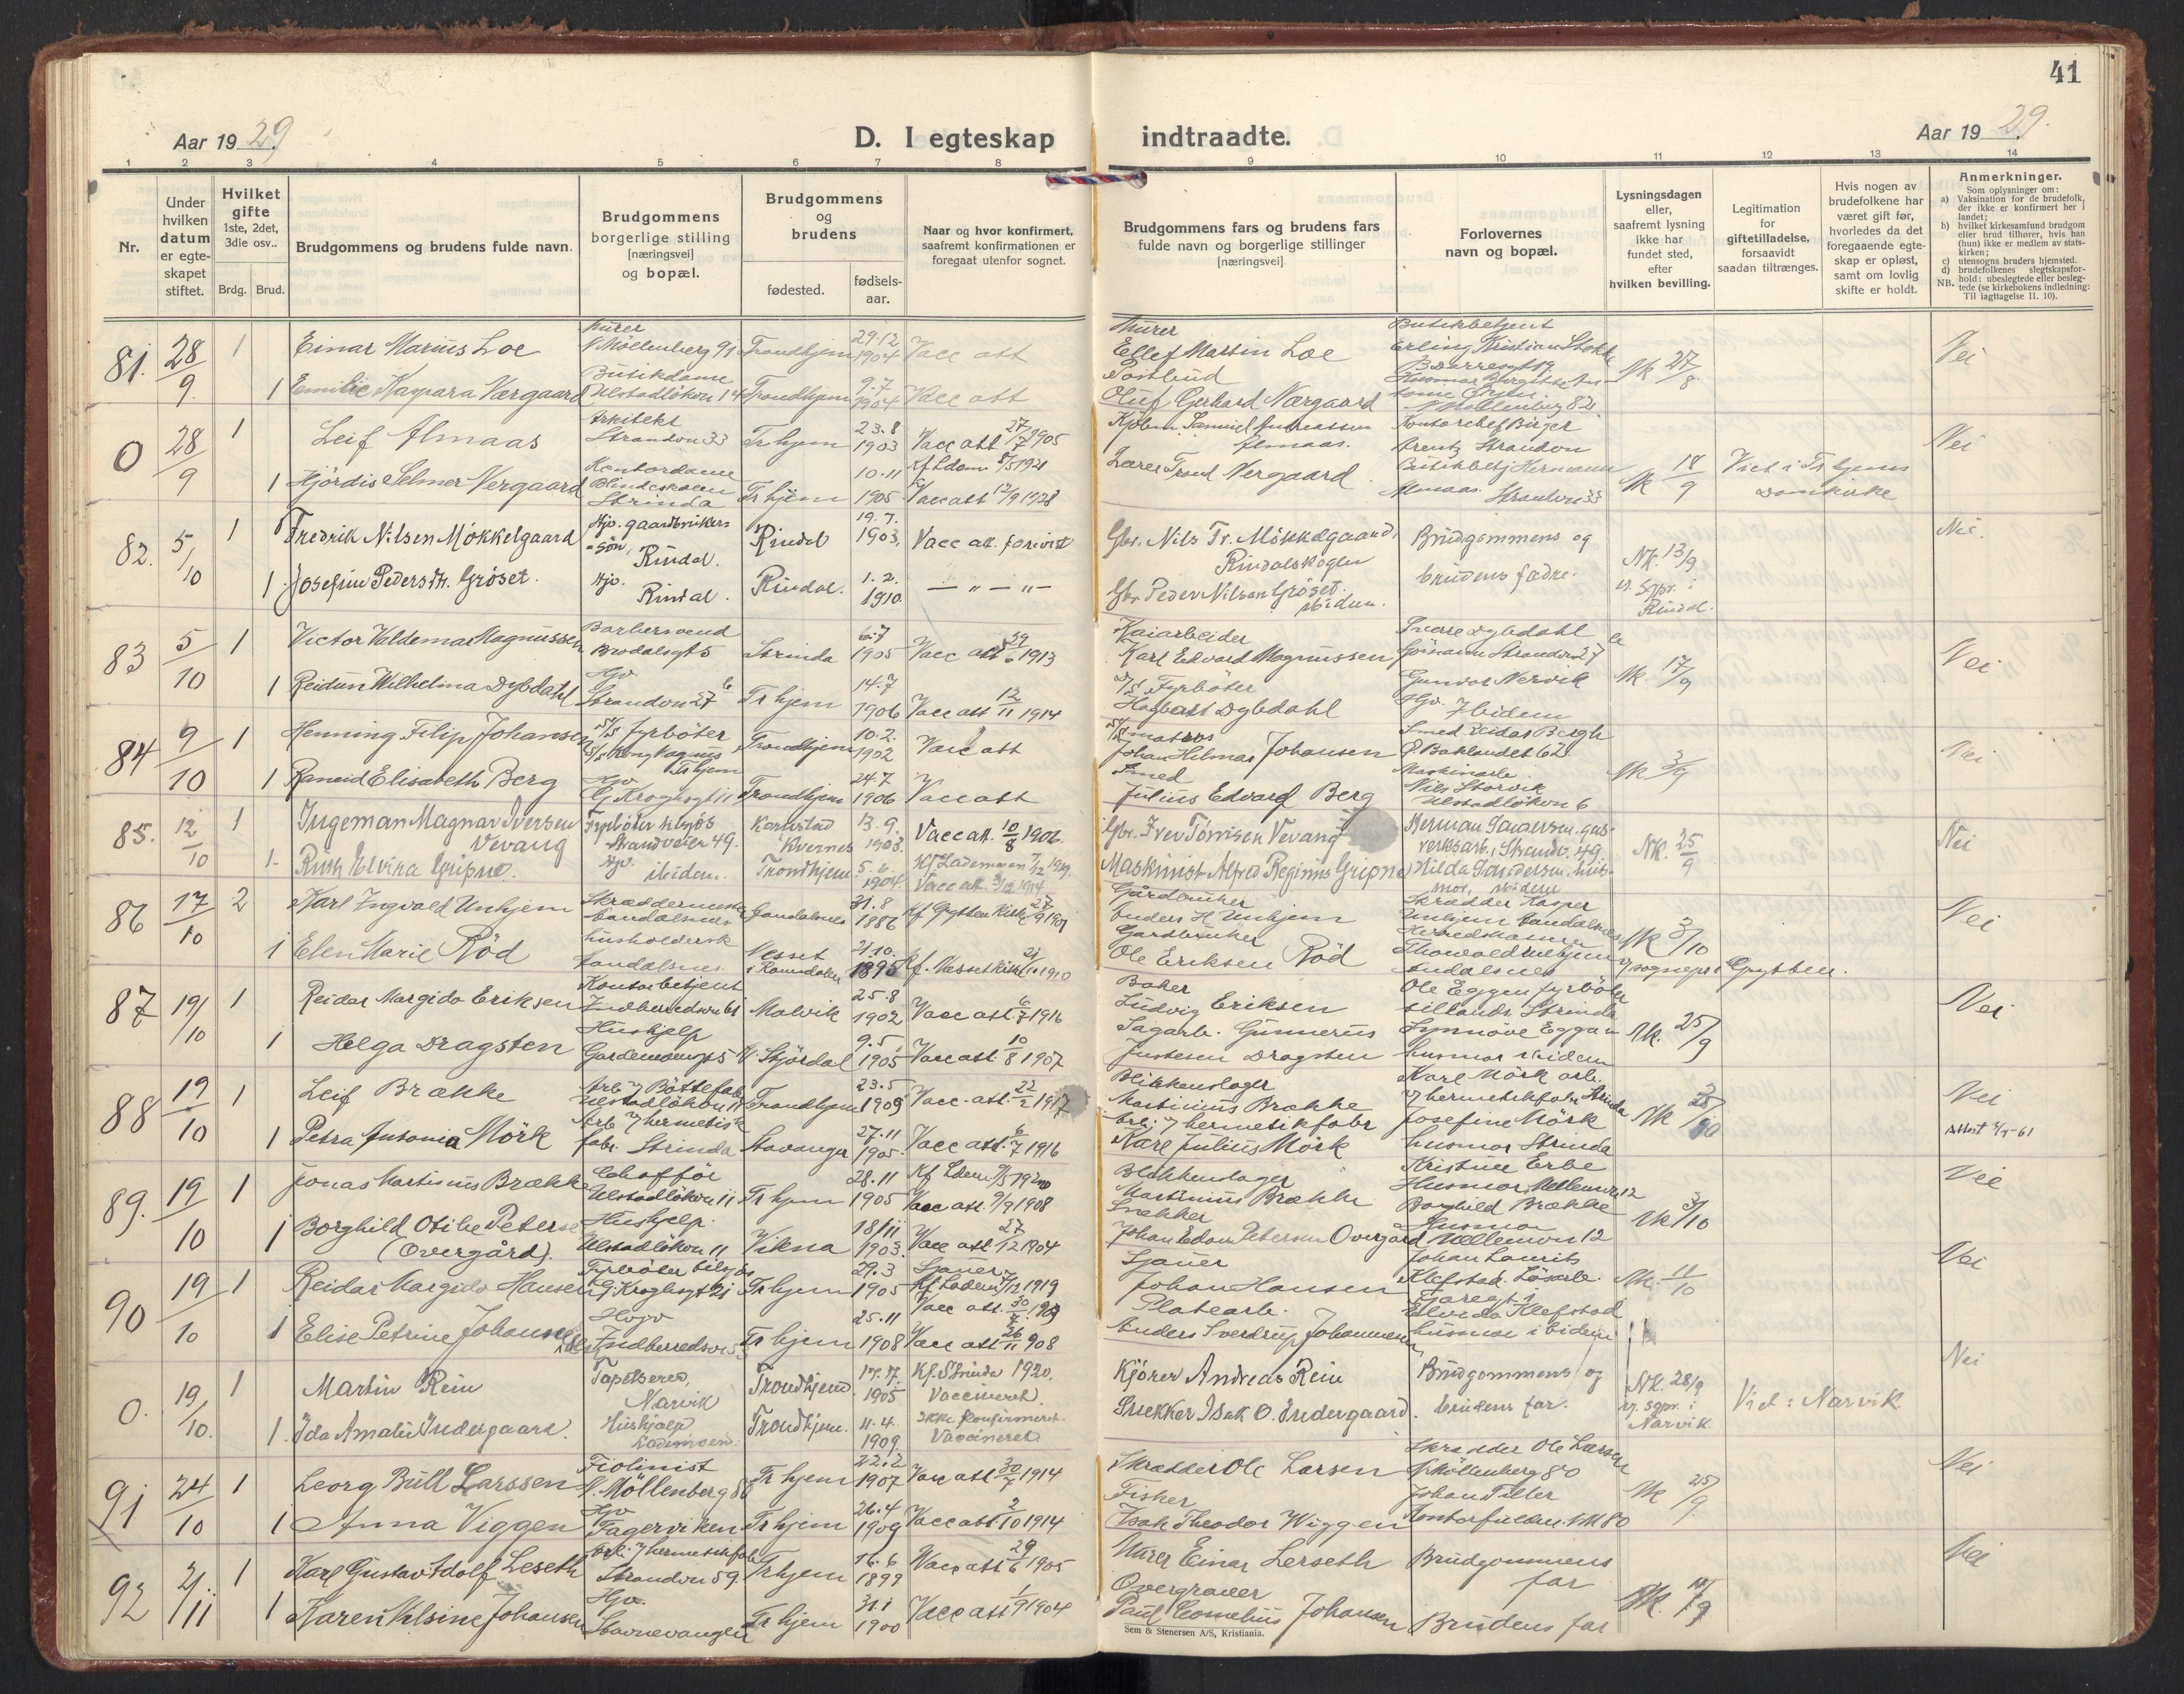 41
Aar 1929.
D. I egteskap
indtraadte.
Aar 1929.
1 2 3 4 5 6 7 8 9 10 11 12 13 14
Nr.
Under hvilken datum er egte-skapet stiftet.
Hvilket gifte 1ste, 2det, 3die osv..
Brdg. Brud.
Brudgommens og brudens fulde navn.
Brudgommens borgerlige stilling [næringsvei] og bopæl.
Brudgommens og brudens
fødested.
fødsels-aar.
Naar og hvor konfirmert, saafremt konfirmationen er foregaat utenfor sognet.
Brudgommens fars og brudens fars fulde navn og borgerlige stillinger [næringsvei]
Forlovernes navn og bopæl.
Lysningsdagen eller, saafremt lysning ikke har fundet sted, efter hvilken bevilling.
Legitimation for giftetilladelse, forsaavidt saadan tiltrænges.
Hvis nogen av brudefolkene har været gift før, hvorledes da det foregaaende egte-skap er opløst, samt om lovlig skifte er holdt.
Anmerkninger.
Som oplysninger om:
a) Vaksination for de brudefolk, der ikke er konfirmert her i landet;
b) hvilket kirkesamfund brudgom eller brud tilhører, hvis han (hun) ikke er medlem av stats-kirken;
c) utensogns bruders hjemsted.
d) brudefolkenes slegtskapsfor-hold: ubeslegtede eller besleg-
NB. tede (se kirkebokens indledning: Til iagttagelse II. 10).
81. 28/9 1 Einar Marius Loe Murer N. Möllenberg 91 Trondhjem 29.12 1904 Vacc att Murer Ellef Martin Loe Butikbetjent Erling Kristian Stokke Nk 27/8 Nei
1 Emilie Kaspara Nergaard Butikdame Ulstadlökvn 14 Trondhjem 9.7 1904 Vacc att Postbud Oluf Gerhard Nærgaard N. Möllenberg 82
0 28/9 1 Leif Almaas Arkitekt Strandvn 33 Trhjem 23.8 1903 Vacc att 27/7 1905 Kjöbm. Samuel Andreassen Almaas. Kontorchef Birger Arentz Strandvn Nei
1 Hjördis Selmer Vergaard Kontordame Blindeskolen Strinda Trhjem 10.11 1905 Vacc att 12/9 1928 Lærer Trond Vergaard Butikbetj Hermann Almaas Strandvn 33 Nk 18/9 Viet i Trhjems Domkirke
82. 5/10 1 Fredrik Nilsen Møkkelgaard Hjv. gaardbrukers-søn, Rindal. Rindal 19.7. 1903. Vacc att. forevist Gbr. Nils Fr. Møkkelgaard, Rindalskogen Brudgommens og Nk. 13/9 Nei.
1. Josefine Pedersdtr. Grøset. Hjv. Rindal. Rindal. 1.2. 1910 — " — " — Gbr Peder Nilsen Grøset. ibidem. brudens fædre. v. sgpr. i Rindal.
83 5/10 1 Victor Valdemar Magnussen Barbersvend Brodalsgt 5 Strinda 6.7 1905 Vacc att 29/6 1913 Kaiarbeider Karl Edvard Magnussen Sverre Dybdahl Sjömann Strandvn 27 Nk. 17/9 Nei
1 Reidun Wilhelma Dybdahl Hjv Strandvn 27 b Trhjem 14.7 1906 Vacc att 12/11 1914 D/S Fyrböter Hagbart Dybdahl Gunvor Nervik Hjv. Ibidem
84 9/10 1 Henning Filip Johansen S/S fyrböter S/S Kong Magnus Trhjem Trondhjem 10.2. 1902 Vacc att S/S matros Johan Hilmar Johansen Smed Reidar Bergh Ö. Baklandet 62 Nk 3/9 Nei
1 Ragneid Elisabeth Berg Hjv G. Kroghsgt 11 Trondhjem 24.7 1906 Vacc att Smed Julius Edvard Berg Nils Storvik Ulstadlökvn 6
85. 12/10 1 Ingeman Magnar Iversen Vevang Fyrböter tilsjös Strandveien 49. Kornstad Kvernes 13.9. 1903. Vacc att. 10/8 1906 Gbr. Iver Tønnisen Vevang Herman Sandersen. gas-verksarb., Strandv. 49 Nk. 25/9 Nei
1. Ruth Elvira Gripne. Hjv. ibidem. Trondhjem 5.6. 1904 Kf Lademoen 7/12 1919. Vacc att. 3/12 1914 Maskinist Alfred Reginius Gripne Hilda Sandersen. hus-mor, ibidem
86 17/10 2 Karl Ingvald Unhjem Skræddermester Aandalsnes Aandalsnes 31.8 1886 Kf Grytten Kirke 27/9 1901 Gårdbruker Anders H Unhjem Skrædder Kasper Unhjem Aandalsnes Nk 3/10 Nei
1 Elen Marie Röd husholderske Aandalsnes Nesset i Romsdalen 21.10. 1895 Kf. Nesset Kirke 1910 Gardbruker Ole Eriksen Röd Thorvald Unhjem Andalsnes v/ sognepr i Grytten.
87 19/10 1 Reidar Margido Eriksen Kontorbetjent Indherredsvn 61 Malvik 25.8 1902 Vacc att. 6/7 1916 Baker Ludvig Eriksen Ole Eggen fyrböter tillands Strinda Nk. 25/9 Nei
1 Helga Dragsten Hushjelp Gardemoensgt 5 N. Stjördal 9.5. 1905 Vacc att. 10/8 1907 Sagarb. Gunnerus Justesen Dragsten Synnöve Eggen husmor ibidem
88 19/10 1 Leif Brække Arb v/ Böttefabr Ulstadlökvn 11 Trondhjem 23.5 1909 Vacc. att. 22/2 1917 Blikkenslager Martinius Brække Karl Mörk arb. v/ hermetikfabr Strinda Nk Nei
1 Petra Antonia Mörk Arb v/ hermetik fabr. Strinda Stavanger 27.11 1905. Vacc att. 6/7 1916 Arb. v/ hermetikfabr Karl Julius Mörk Josefine Mörk husmor Strinda Attest 61
89. 19/10 1 Jonas Martinius Brække Chafför Ulstadlökvn 11 Trhjem 28.11 1905 Vacc att. 9/9 1908 Blikkenslager Martinius Brække Kristine Erbe Husmor, Mellemvn 12 Nk 3/10 Nei
1 Borghild Otilie Petersen (Overgård). Hushjelp. Ulstadlökvn 11 Vikna 18/11 1903. Vacc att 27/12 1904 Snekker Johan Edan Petersen Overgård Borghild Brække Husmor Mellemvn 12
90 19/10 1 Reidar Margido Hansen Fyrböter tilsjös G. Kroghsgt 21 Trhjem 29.3 1905 Kf Ladem 1919 Vacc att. Sjauer Johan Hansen Johan Laurits Klefstad. Lösarb. Nk. 11/10 Nei
1 Elise Petrine Johannesen Hvjv Indherredsvn 53 Trhjem 25.11 1908 Vacc att 26/11 908 Platearb. Anders Sverdrup Johannesen Elvida Klefstad husmor ibidem
0. 19/10. 1 Martin Rein Tapetserer, Narvik Trondhjem 17.7. 1905 Kf. Strinda 1920. Vaccineret. Kjører Andreas Rein Brudgommens og Nk. 28/9 Viet i Narvik Nei
1. Ida Amalie Indergaard. Hushjælp Lademoen. Trondhjem. 11.4. 1909. Ikke konfirmeret. Vaccineret. Snekker Isak O. Indergaard. brudens far. v. sgpr. i Narvik
91 24/10 1 Georg Bull Larssen Fiolinist N. Möllenberg 80 Trhjem 22.2 1907 Vacc att 30/7 1914 Skrædder Ole Larsen Skrædder Ole Larssen N. Möllenberg 80 Nk 25/9. Nei
1 Anna Viggen Hjv Fagerviken Trhjem 26.4 1909 Vacc att 2/10 1914 Fisker Isak Theodor Wiggen Johan Tiller
92 2/11 1 Karl Gustav Adolf Leseth Arb. v/ hermetikfabr Strandvn 59. Trhjem 16.6 1899 Vacc att 29/6 1905 Murer Einar Lerseth Brudgommens far Nk. 17/9 Nei
1 Karen Alsine Johansen Hjv. Stavnevangen Trhjem 31.1 1900 Vacc att 1/9 1904 Overgraver Paul Cornelius Johansen Brudens far
Sem & Stenersen A/S, Kristiania.